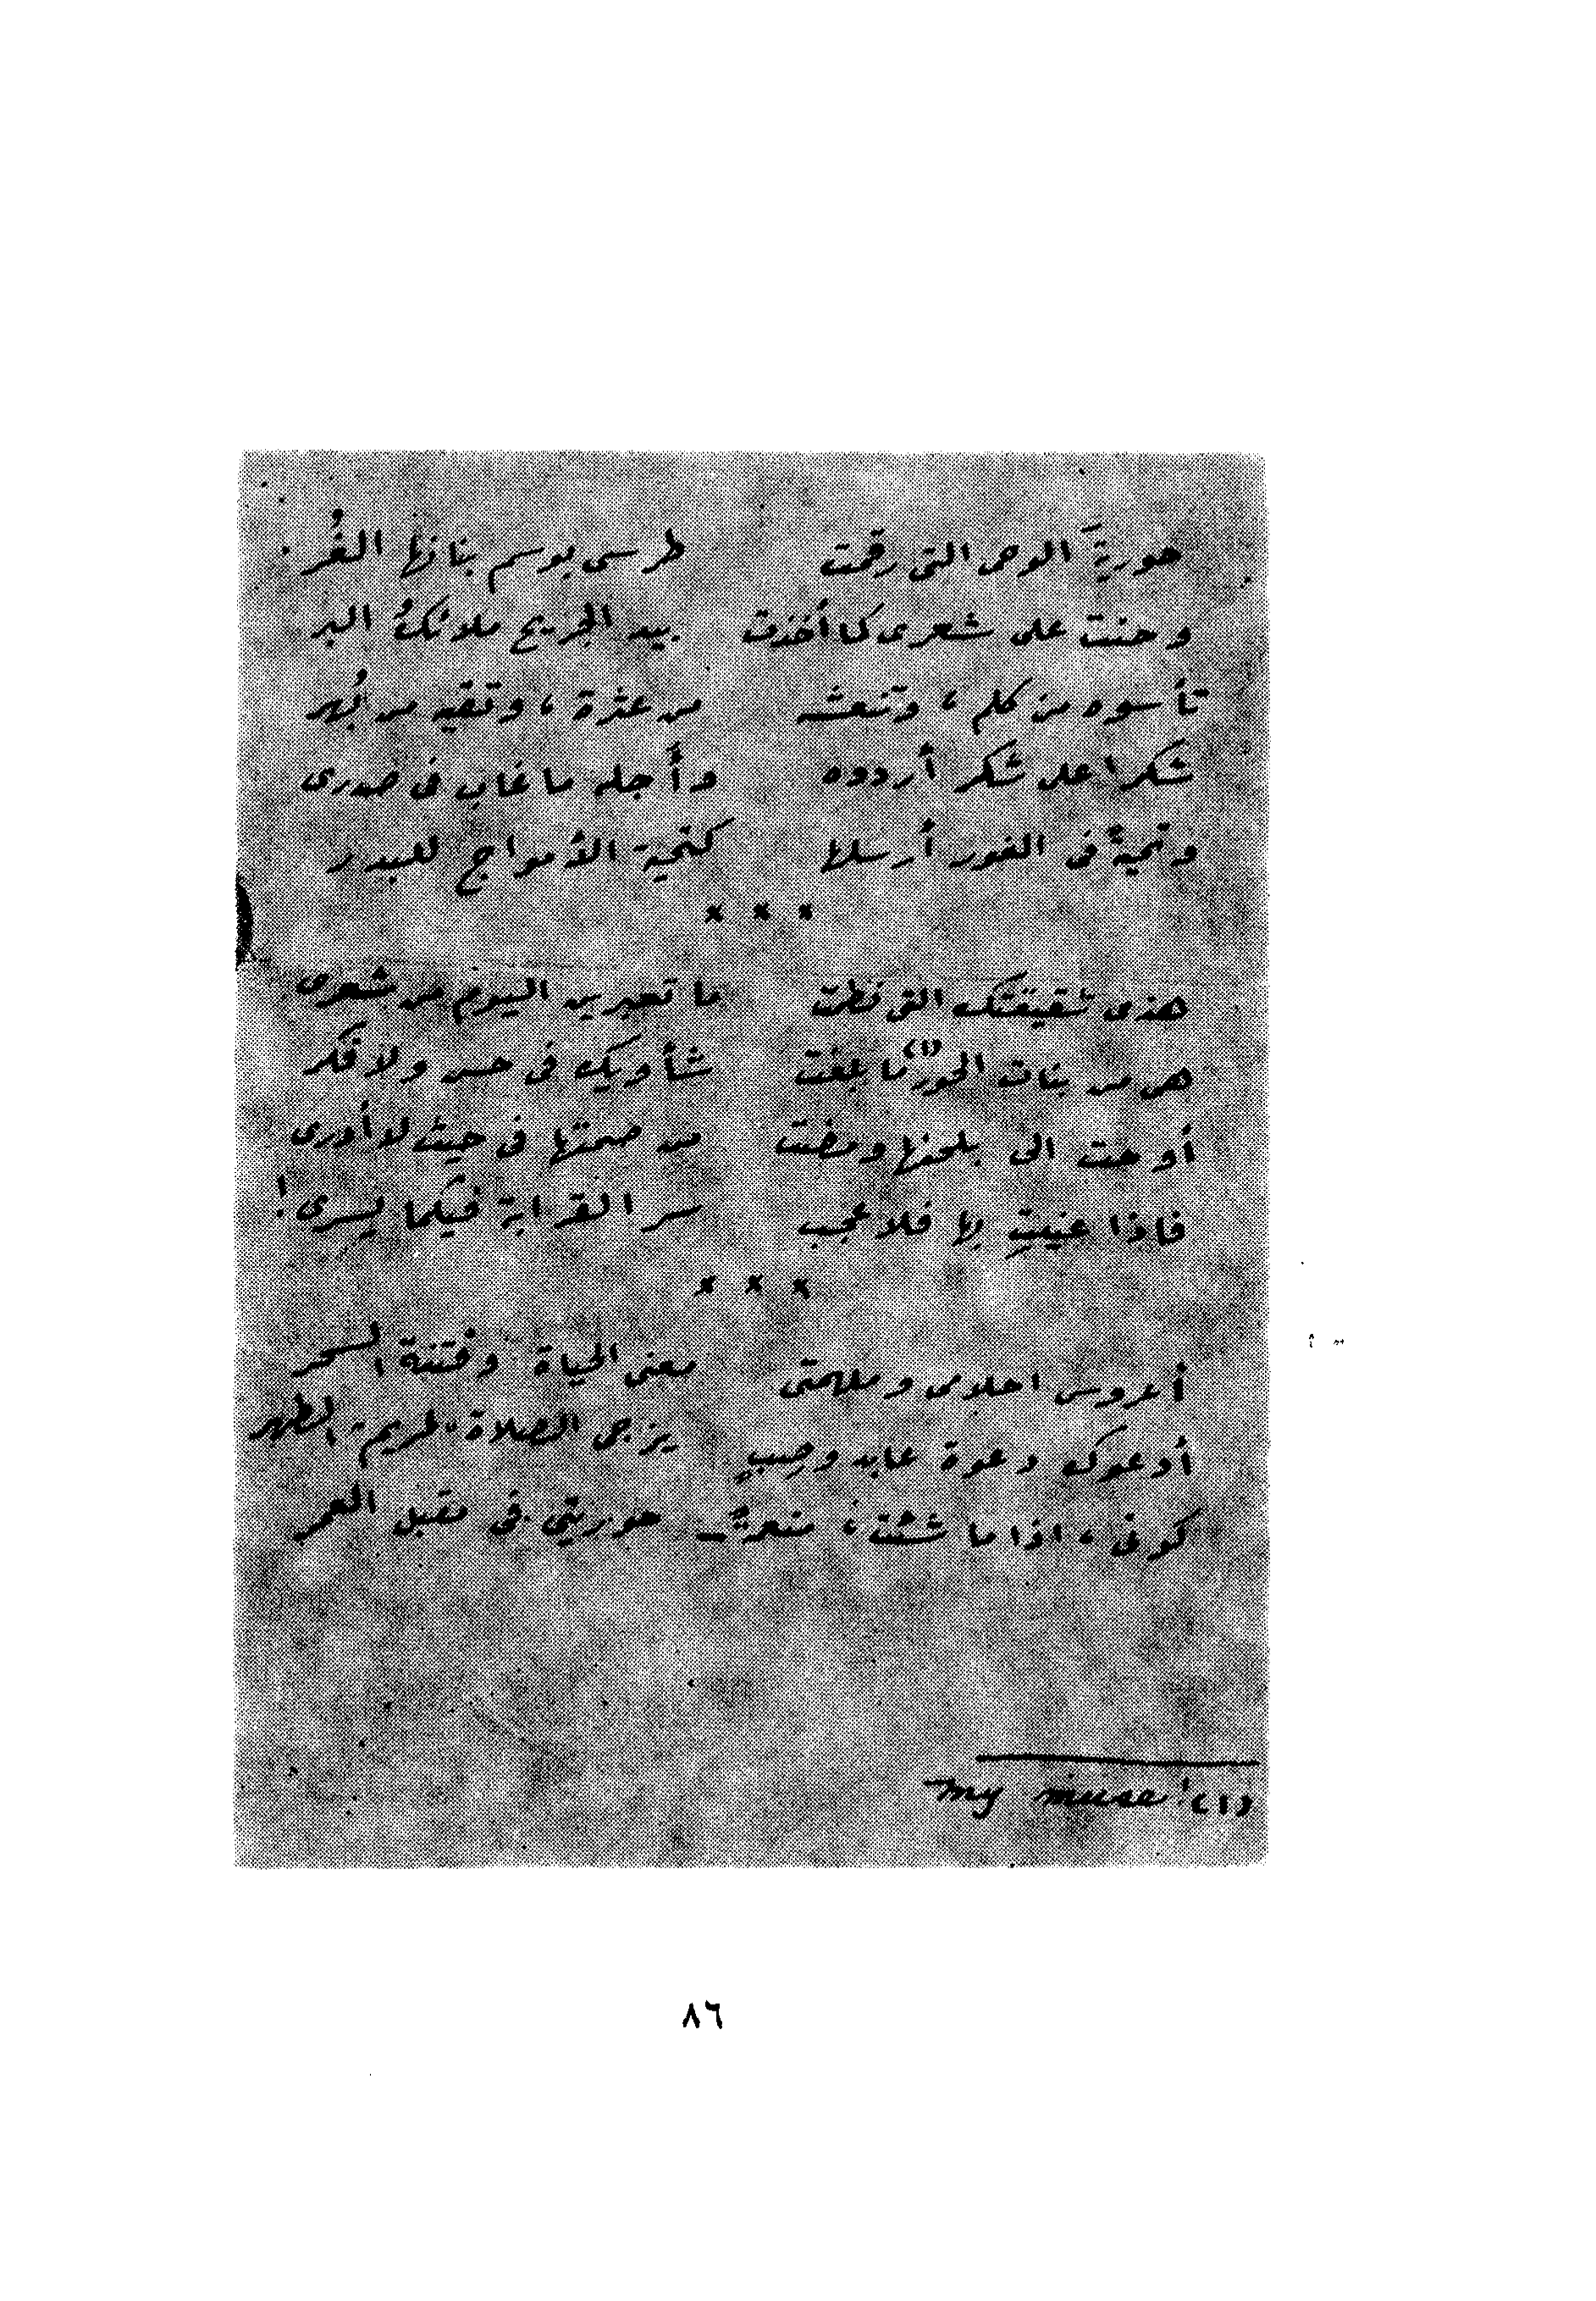 حوريةَ الوحى التى رقمت طرسى بوسم بنانها الغُر
وحنت على شعرى كما أخذت بيد الجريح ملائكُ البر
تأسوه من كلم ، وتنعشه من عثرة ، وتقيه من بُهر
شكرا على شكر أردده وأجله ما غاب فى صدرى
وتحيةً فى الغور أرسلها كتحية الأمواج للبدر
* * *
هذى شقيقتك التى نظمت ما تعبرين اليوم من شعرى
هى من بنات الحور (١) ما بلغت شأويك فى حسن ولا فكر
أوحت الى بلحنها ومضت من صمتها فى حيث لا أدرى
فاذا عنيتِ بها فلا عجب سر القرابة فيكما يسرى !
* * *
أعروس احلامى وملهمتى معنى الحياة وفتنة السحر
أدعوك دعوة عابد وصِبٍ يزجى الصلاة "لمريم" الطهر
كونى ، اذا ما شئت ، منعمةً - حوريتى فى مقبل العمر
(١) my muse!
٨٦